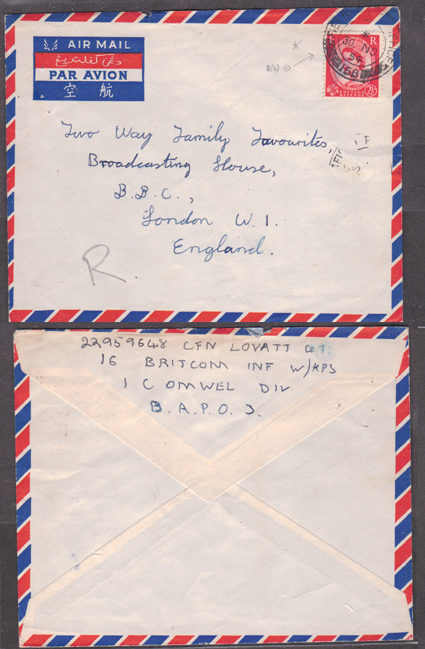 AIR MAIL
PAR AVION
空 航
E R
2½D
Two Way Family Favourites,
Broadcasting House,
B.B.C.,
London W.1.
England.
R.
22959648 CFN LOVATT
16 BRITCOM INF W/KPS
1 COMWEL DIV
B.A.P.O. 3